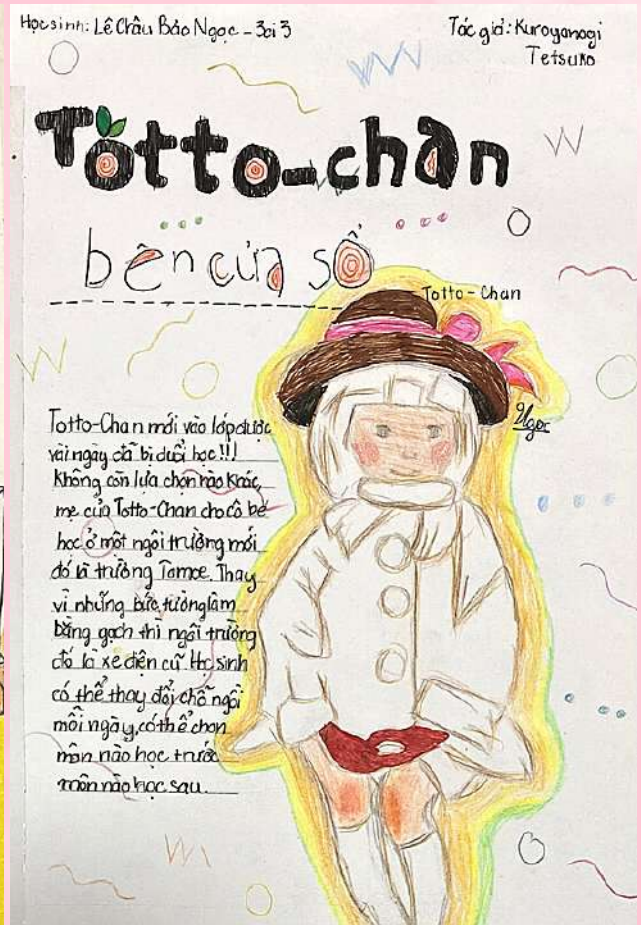 Học sinh: Lê Châu Bảo Ngọc - 3ci 3
Tác giả: Kuroyanagi
Tetsuko
Totto-chan
bên cửa sổ
Totto - Chan
Ngọc
Totto-Chan mới vào lớp được
vài ngày đã bị đuổi học!!!
Không còn lựa chọn nào khác,
mẹ của Totto-Chan cho cô bé
học ở một ngôi trường mới
đó là trường Tomoe. Thay
vì những bức tường làm
bằng gạch thì ngôi trường
đó là xe điện cũ. Học sinh
có thể thay đổi chỗ ngồi
mỗi ngày, có thể chọn
môn nào học trước
môn nào học sau.